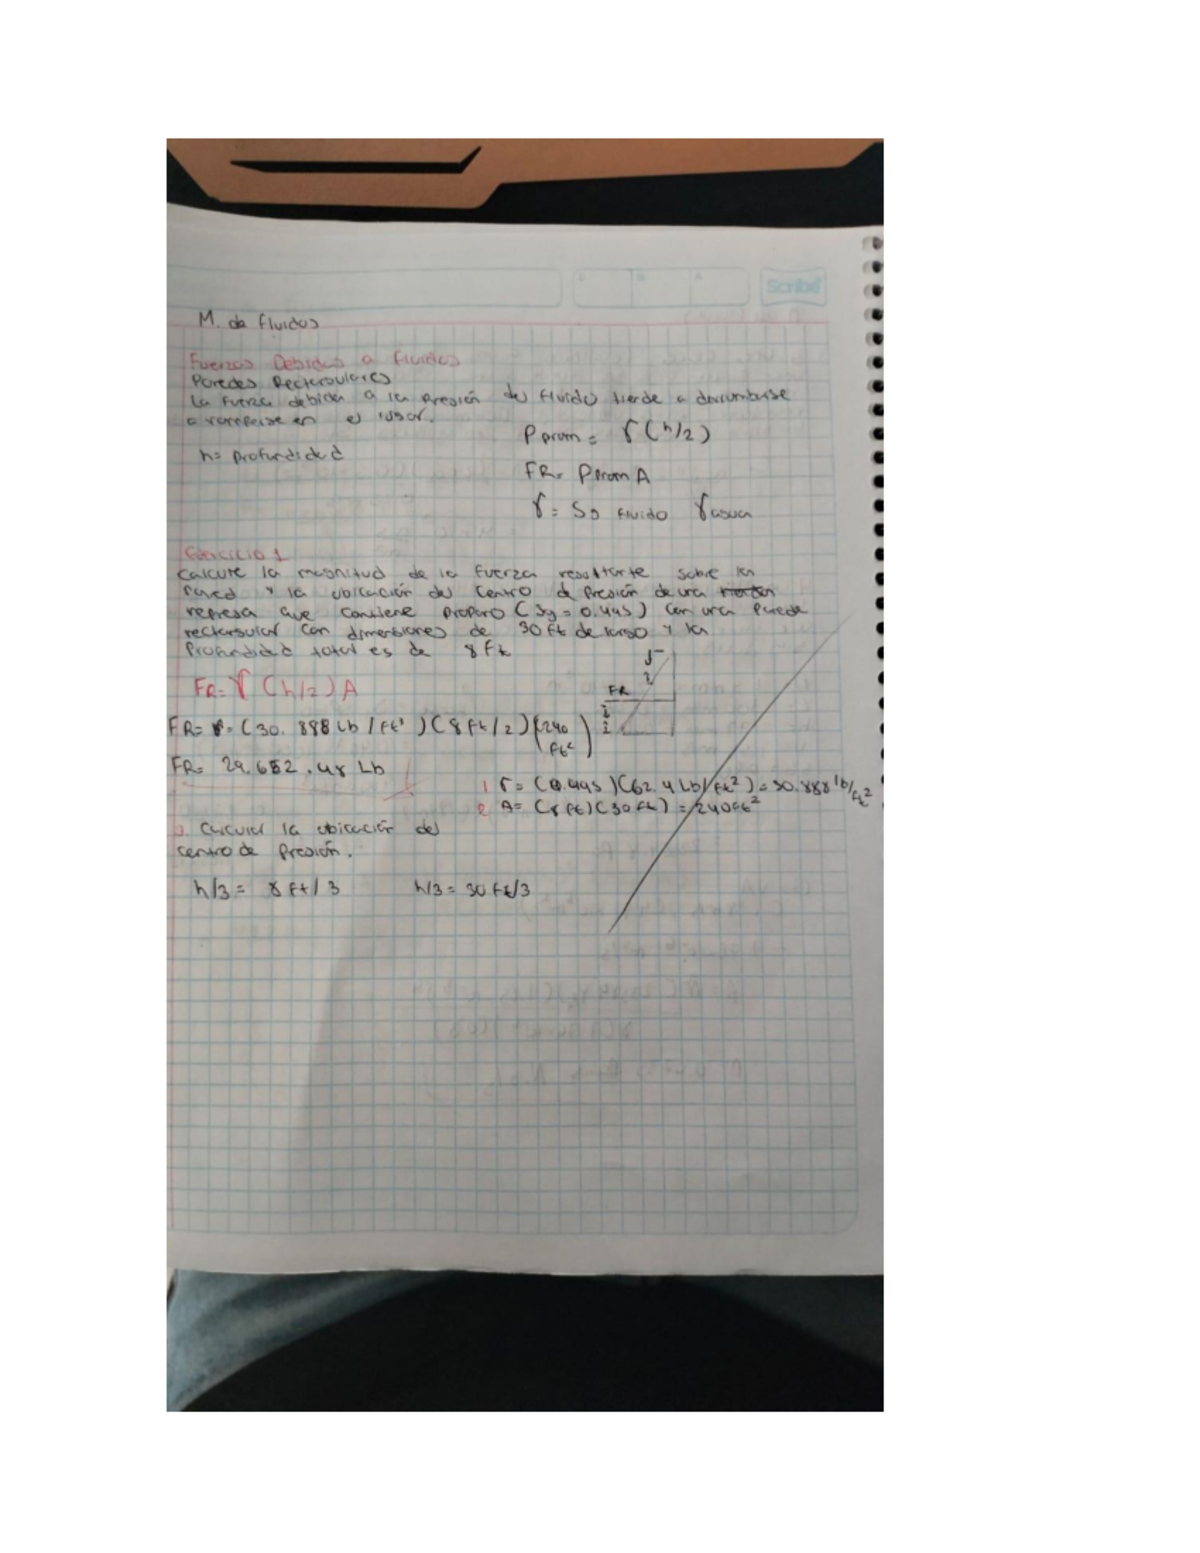 Scribe
M. de fluidos
Fuerzas Debidas a fluidos
Paredes Rectangulares
La fuerza debida a la presión del fluido tiende a derrumbarse
o romperse en el lugar.
P prom = γ (h/2)
h= profundidad
FR= Pprom A
γ = Sg fluido γ agua
Ejercicio 1
Calcule la magnitud de la fuerza resultante sobre la
pared y la ubicación del centro de presión de una
represa que contiene propano (Sg = 0.495) con una pared
rectangular con dimensiones de 30 ft de largo y la
Profundidad total es de 8 ft
FR= γ (h/2) A
FR
FR= γ= (30.888 Lb / ft³) (8 ft/2) (240 ft²)
FR= 29.652.48 Lb
1 γ = (0.495)(62.4 Lb/ft²) = 30.888 lb/ft²
2 A= (8 ft)(30 ft) = 240 ft²
Calcular la ubicación del
centro de presión.
h/3 = 8 ft/3 h/3 = 30 ft/3